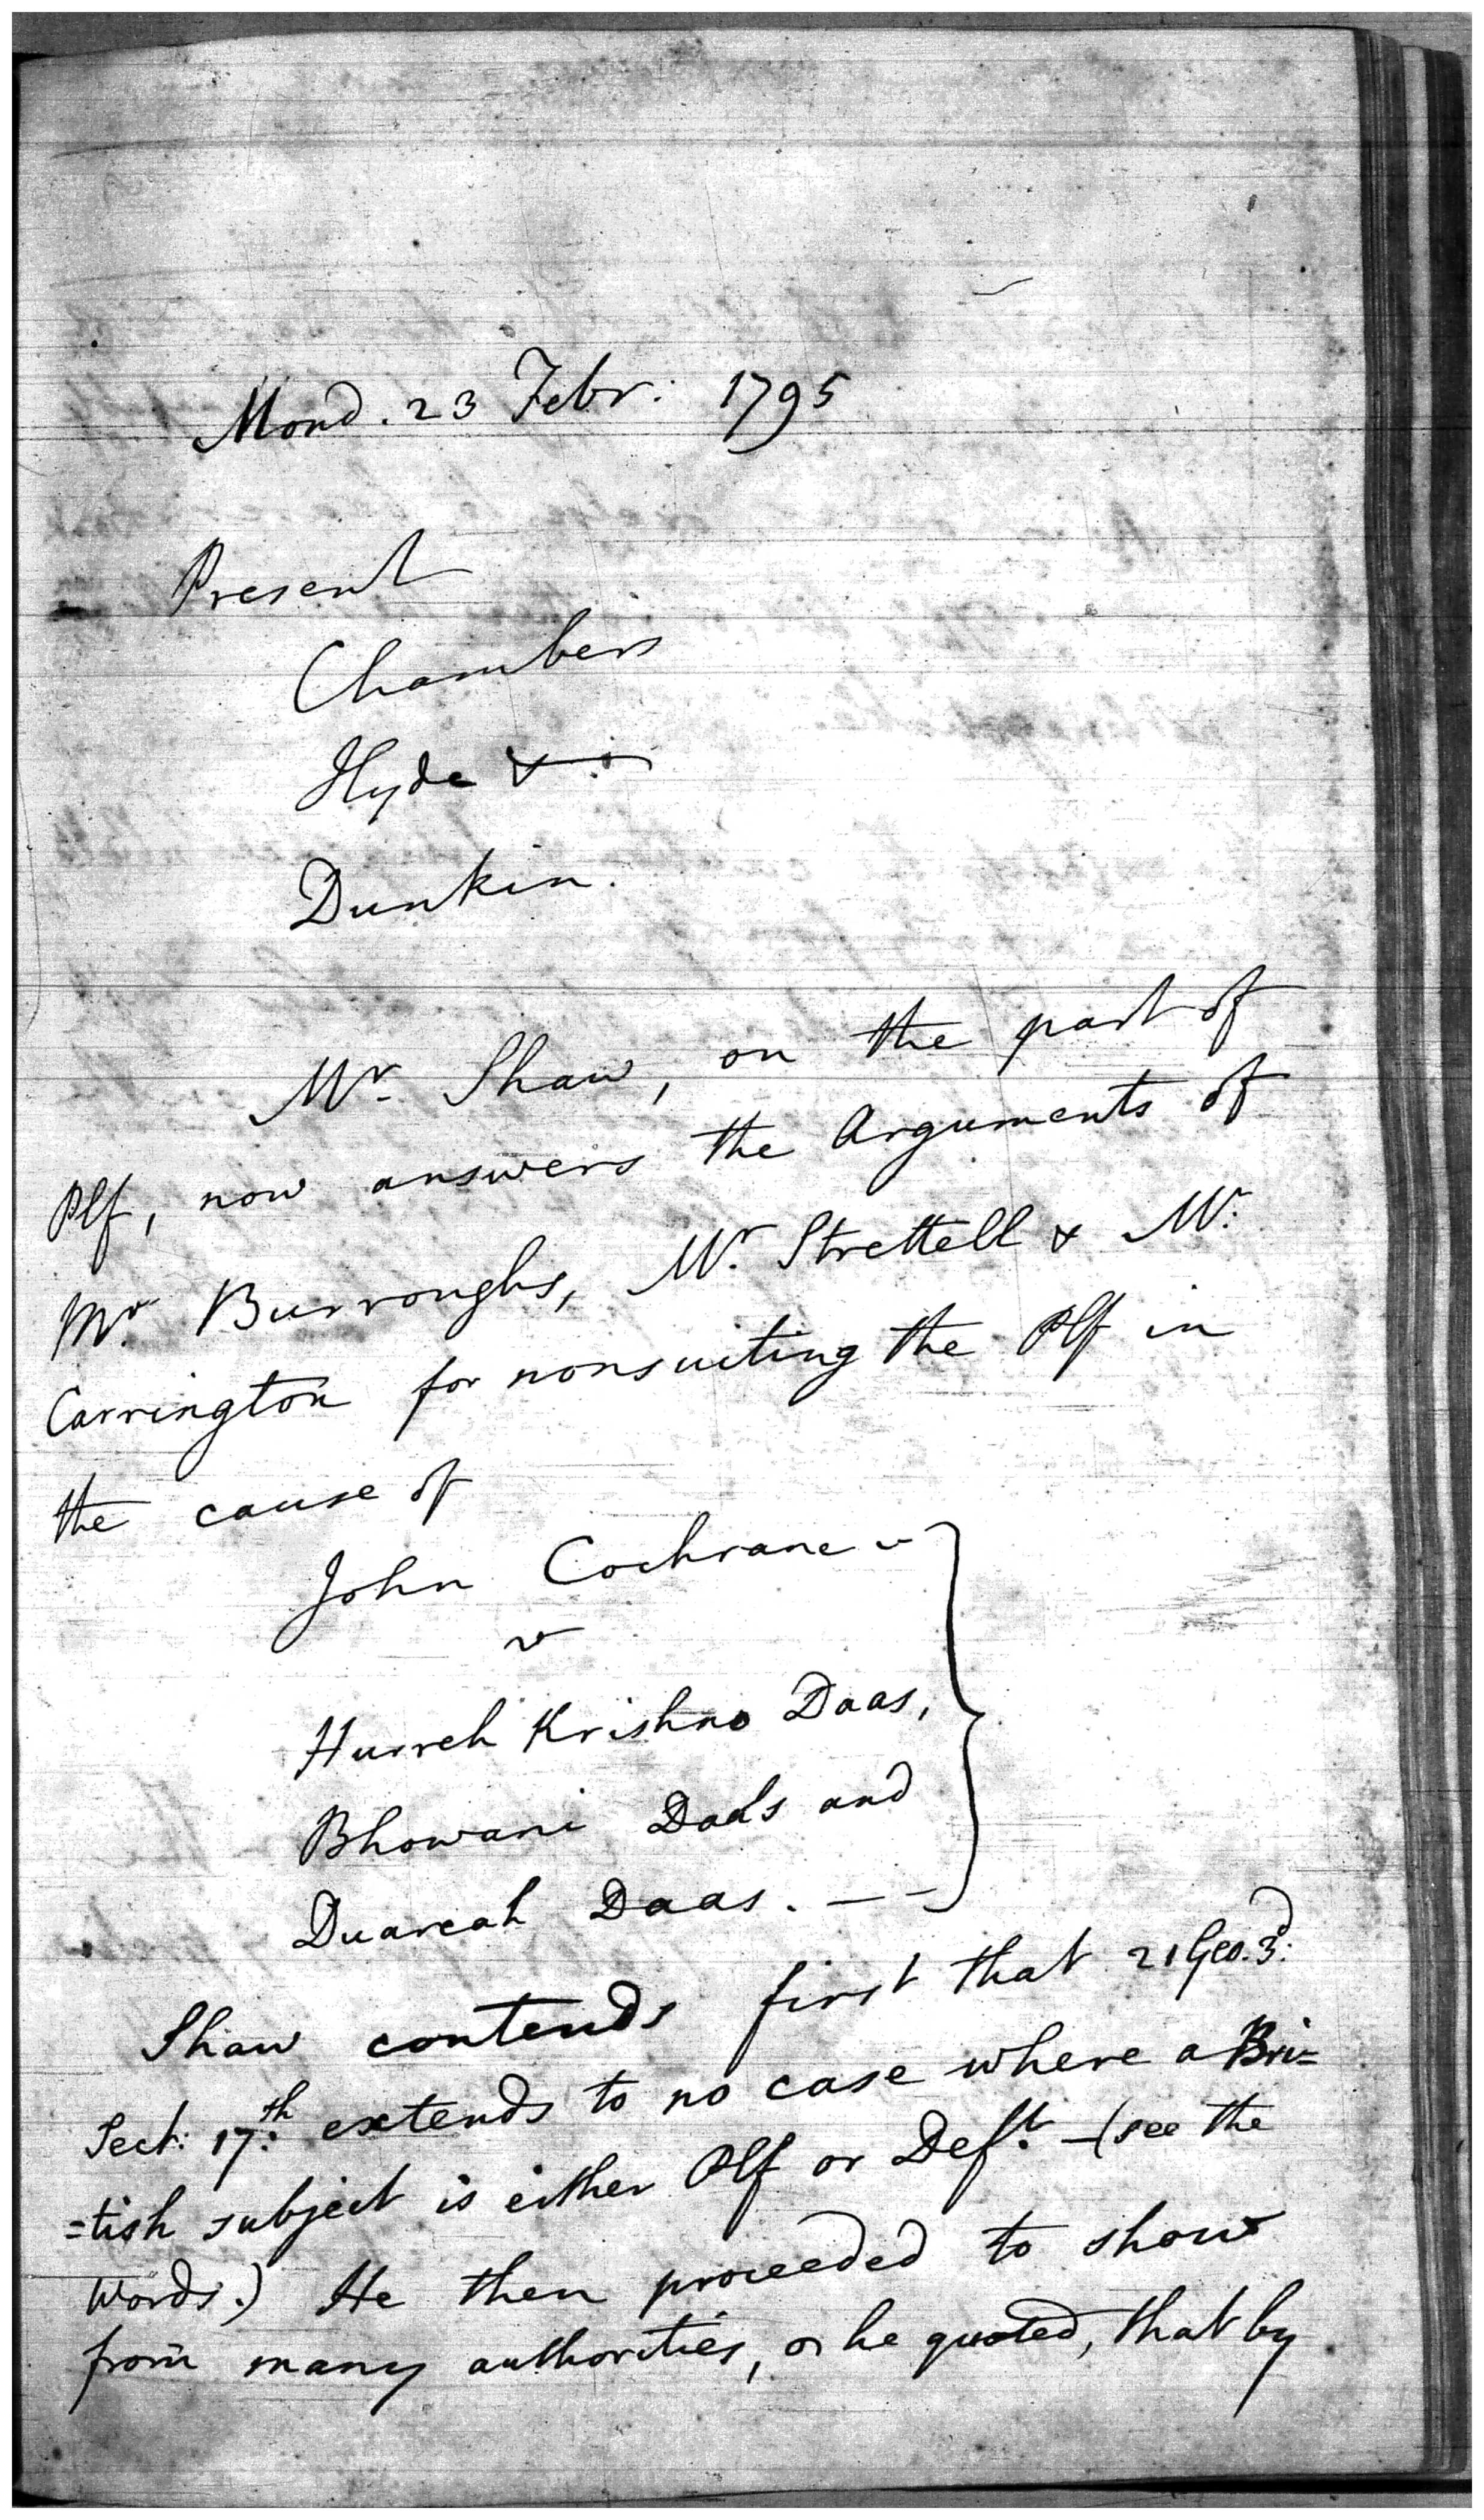 Mond. 23 Febr: 1795
Present
Chambers
Hyde &
Dunkin.
Mr. Shaw, on the part of
Plf, now answers the Arguments of
Mr. Burroughs, Mr. Strettell & Mr.
Carrington for nonsuiting the Plf in
the cause of
John Cochrane
v
Hurreh Krishno Daas,
Bhowani Daas and
Duarcah Daas. — –
Shaw contends first that 21 Geo. 3d:
Sect: 17th: extends to no case where a Bri=
=tish subject is either Plf or Deft. – (see the
words.) He then proceeded to show
from many authorities, he quoted, that by